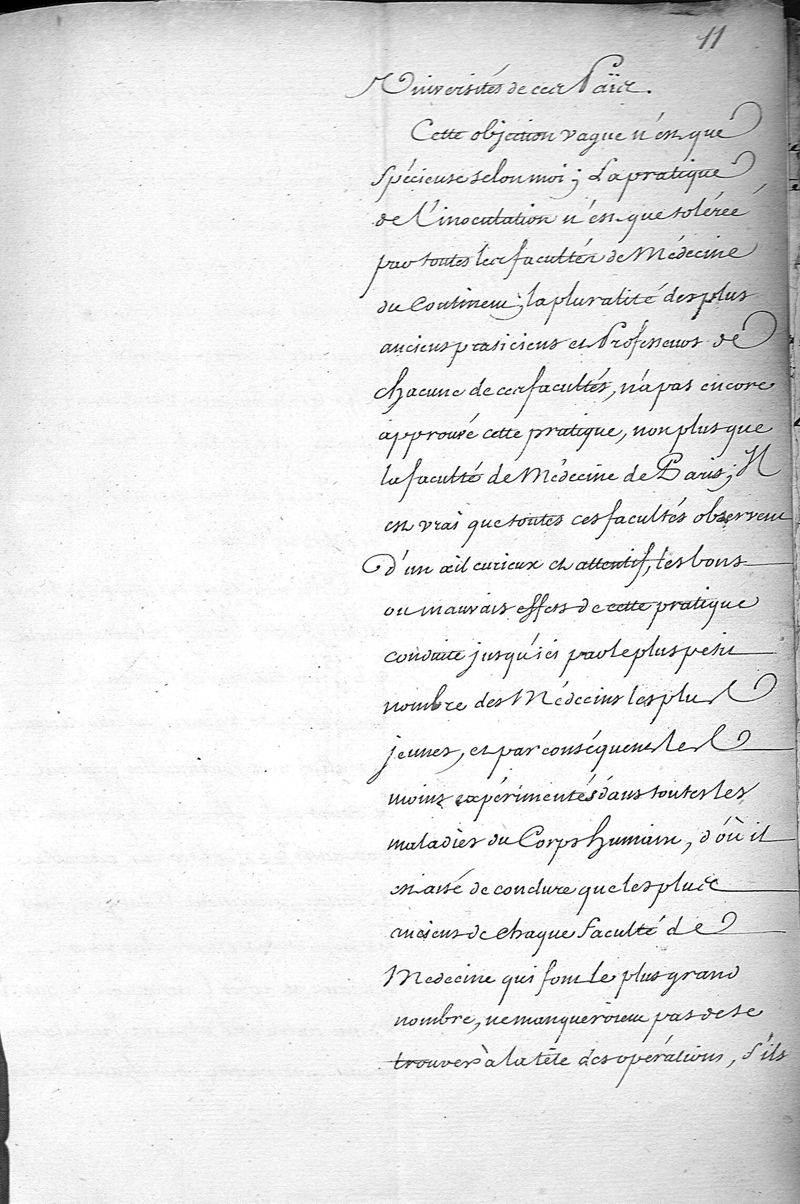 11
Universités de ces Païs.
Cette objection vague n'est que
spécieuse selon moi; La pratique
de L'inoculation n'est que tolérée
par toutes les facultés de Médecine
du Continent; la pluralité des plus
anciens praticiens et Professeurs de
chacune de ces facultés, n'a pas encore
approuvé cette pratique, non plus que
la faculté de Médecine de Paris; Il
est vrai que toutes ces facultés observent
d'un œil curieux et attentif, les bons
ou mauvais effets de cette pratique
conduite jusqu'ici par le plus petit
nombre des Médecins les plus
jeunes, et par conséquent les
moins expérimentés dans toutes les
maladies du Corps humain, d'où il
est aisé de conclure que les plus
anciens de chaque faculté de
Medecine qui font le plus grand
nombre, ne manqueroient pas de se
trouver à la tête des opérations, s'ils